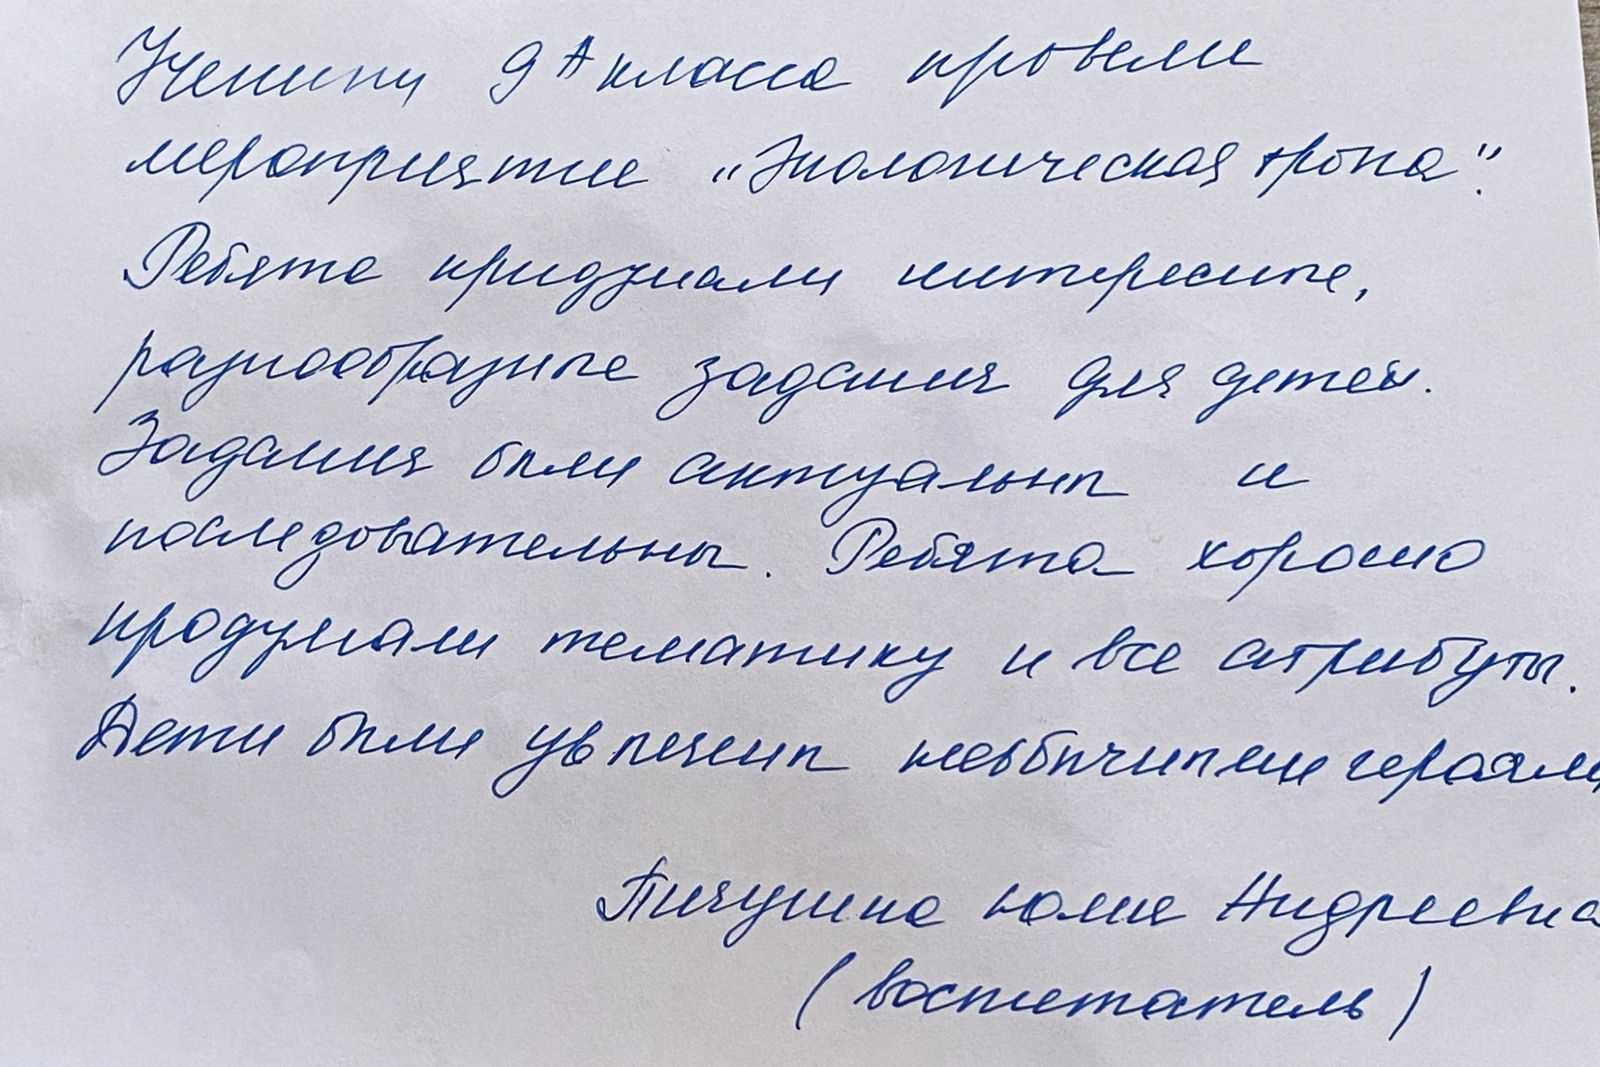 Ученики 9 А класса провели
мероприятие "Экологическая тропа".
Ребята придумали интересные,
разнообразные задания для детей.
Задания были актуальны и
последовательны. Ребята хорошо
продумали тематику и все атрибуты.
Дети были увлечены необычными героями
Пичушкина Юлия Андреевна
(воспитатель)